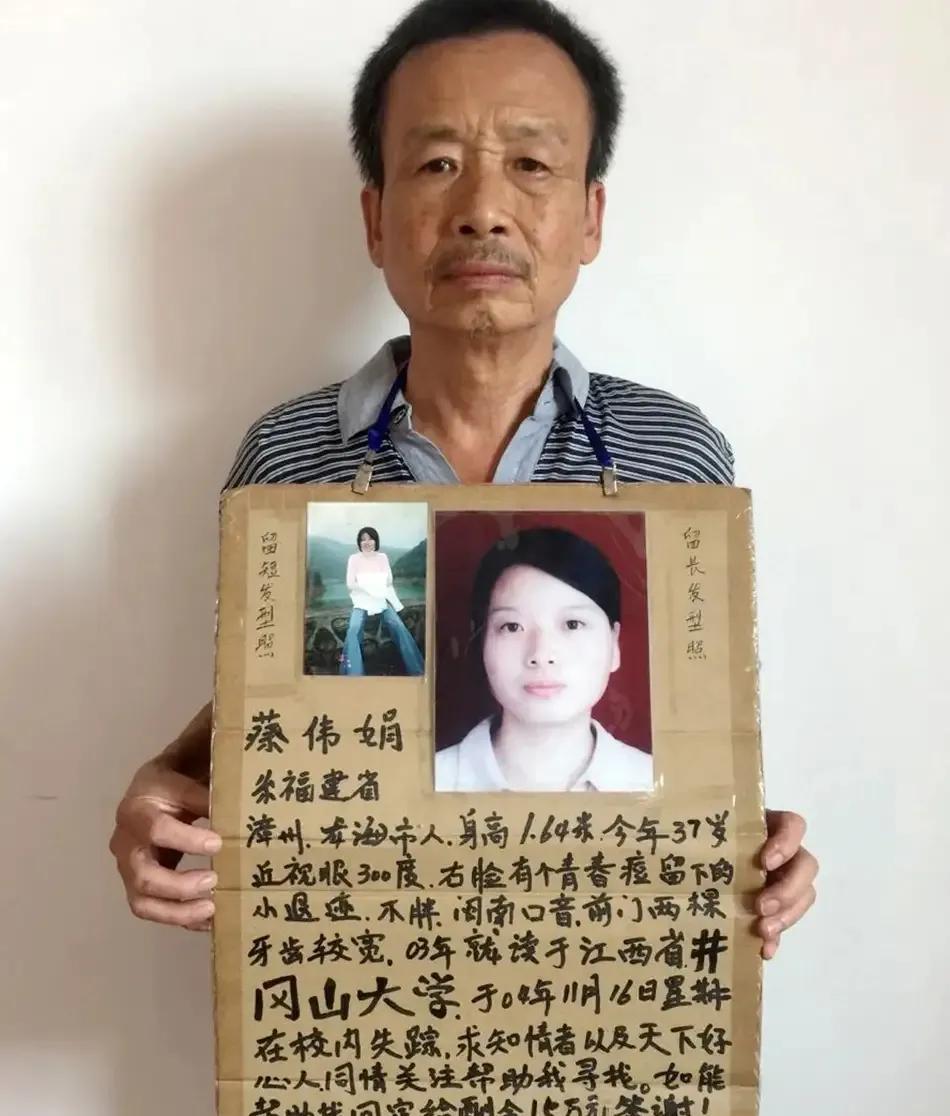 留短发型照
留长发型照
蔡伟娟
福建省
漳州.龙海市人.身高1.64米.今年37岁
近视眼300度.右脸有个青春痘留下的
小退迹.不胖.闽南口音.前门两棵
牙齿较宽.03年就读于江西省井
冈山大学.于04年11月16日星期
在校内失踪.求知情者以及天下好
心人同情关注帮助我寻找。如能
帮助找回定给酬金15万元答谢!